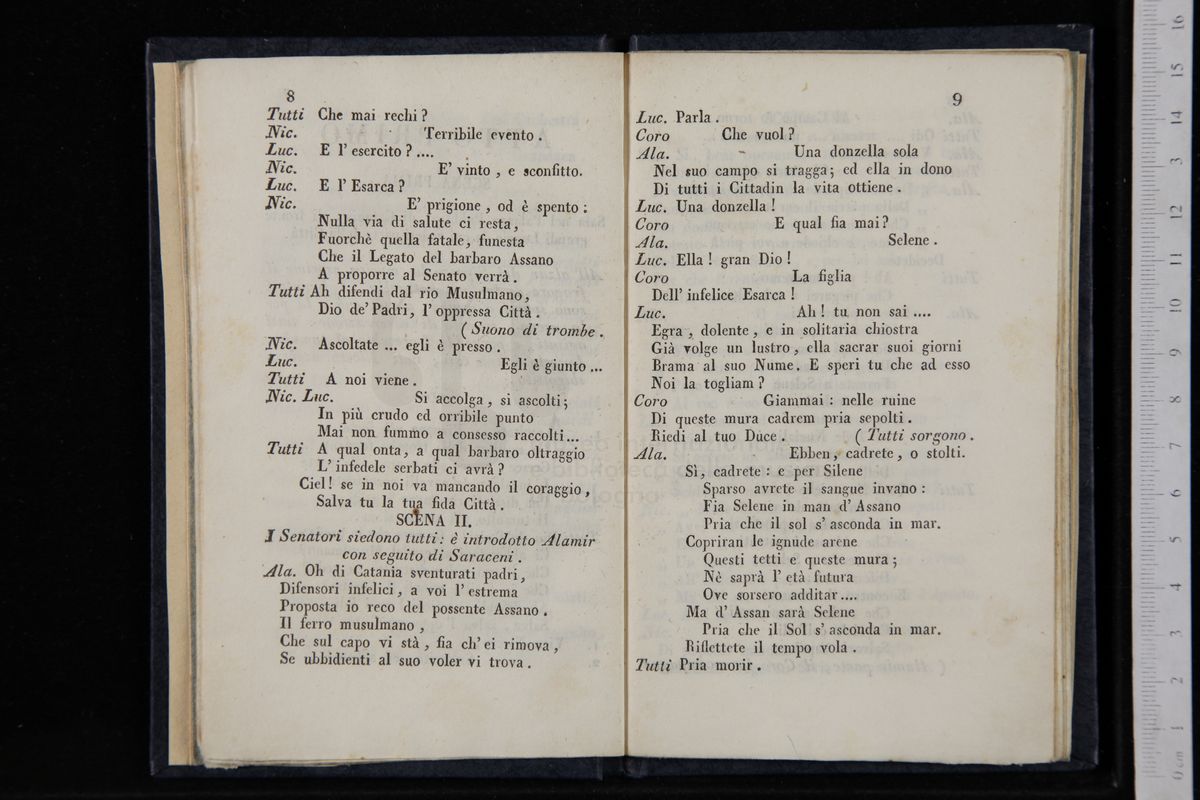 8
Tutti Che mai rechi ?
Nic. Terribile evento .
Luc. E l' esercito ? ....
Nic. E' vinto , e sconfitto.
Luc. E l' Esarca ?
Nic. E' prigione , od è spento :
Nulla via di salute ci resta,
Fuorchè quella fatale, funesta
Che il Legato del barbaro Assano
A proporre al Senato verrà .
Tutti Ah difendi dal rio Musulmano,
Dio de' Padri, l' oppressa Città .
( Suono di trombe .
Nic. Ascoltate ... egli è presso .
Luc. Egli è giunto ...
Tutti A noi viene .
Nic. Luc. Si accolga , si ascolti ;
In più crudo ed orribile punto
Mai non fummo a consesso raccolti ...
Tutti A qual onta, a qual barbaro oltraggio
L' infedele serbati ci avrà ?
Ciel! se in noi va mancando il coraggio ,
Salva tu la tua fida Città .
SCENA II.
I Senatori siedono tutti : è introdotto Alamir
con seguito di Saraceni .
Ala. Oh di Catania sventurati padri,
Difensori infelici, a voi l' estrema
Proposta io reco del possente Assano .
Il ferro musulmano ,
Che sul capo vi stà , fia ch' ei rimova ,
Se ubbidienti al suo voler vi trova .
9
Luc. Parla .
Coro Che vuol ?
Ala. Una donzella sola
Nel suo campo si tragga; ed ella in dono
Di tutti i Cittadin la vita ottiene .
Luc. Una donzella !
Coro E qual fia mai ?
Ala. Selene .
Luc. Ella ! gran Dio !
Coro La figlia
Dell' infelice Esarca !
Luc. Ah ! tu non sai ....
Egra , dolente , e in solitaria chiostra
Già volge un lustro , ella sacrar suoi giorni
Brama al suo Nume. E speri tu che ad esso
Noi la togliam ?
Coro Giammai : nelle ruine
Di queste mura cadrem pria sepolti .
Riedi al tuo Duce . ( Tutti sorgono .
Ala. Ebben, cadrete , o stolti.
Sì, cadrete : e per Silene
Sparso avrete il sangue invano :
Fia Selene in man d' Assano
Pria che il sol s' asconda in mar.
Copriran le ignude arene
Questi tetti e queste mura ;
Nè saprà l' età futura
Ove sorsero additar ....
Ma d' Assan sarà Selene
Pria che il Sol s' asconda in mar.
Riflettete il tempo vola .
Tutti Pria morir .
0 cm 1 2 3 4 5 6 7 8 9 10 11 12 13 14 15 16